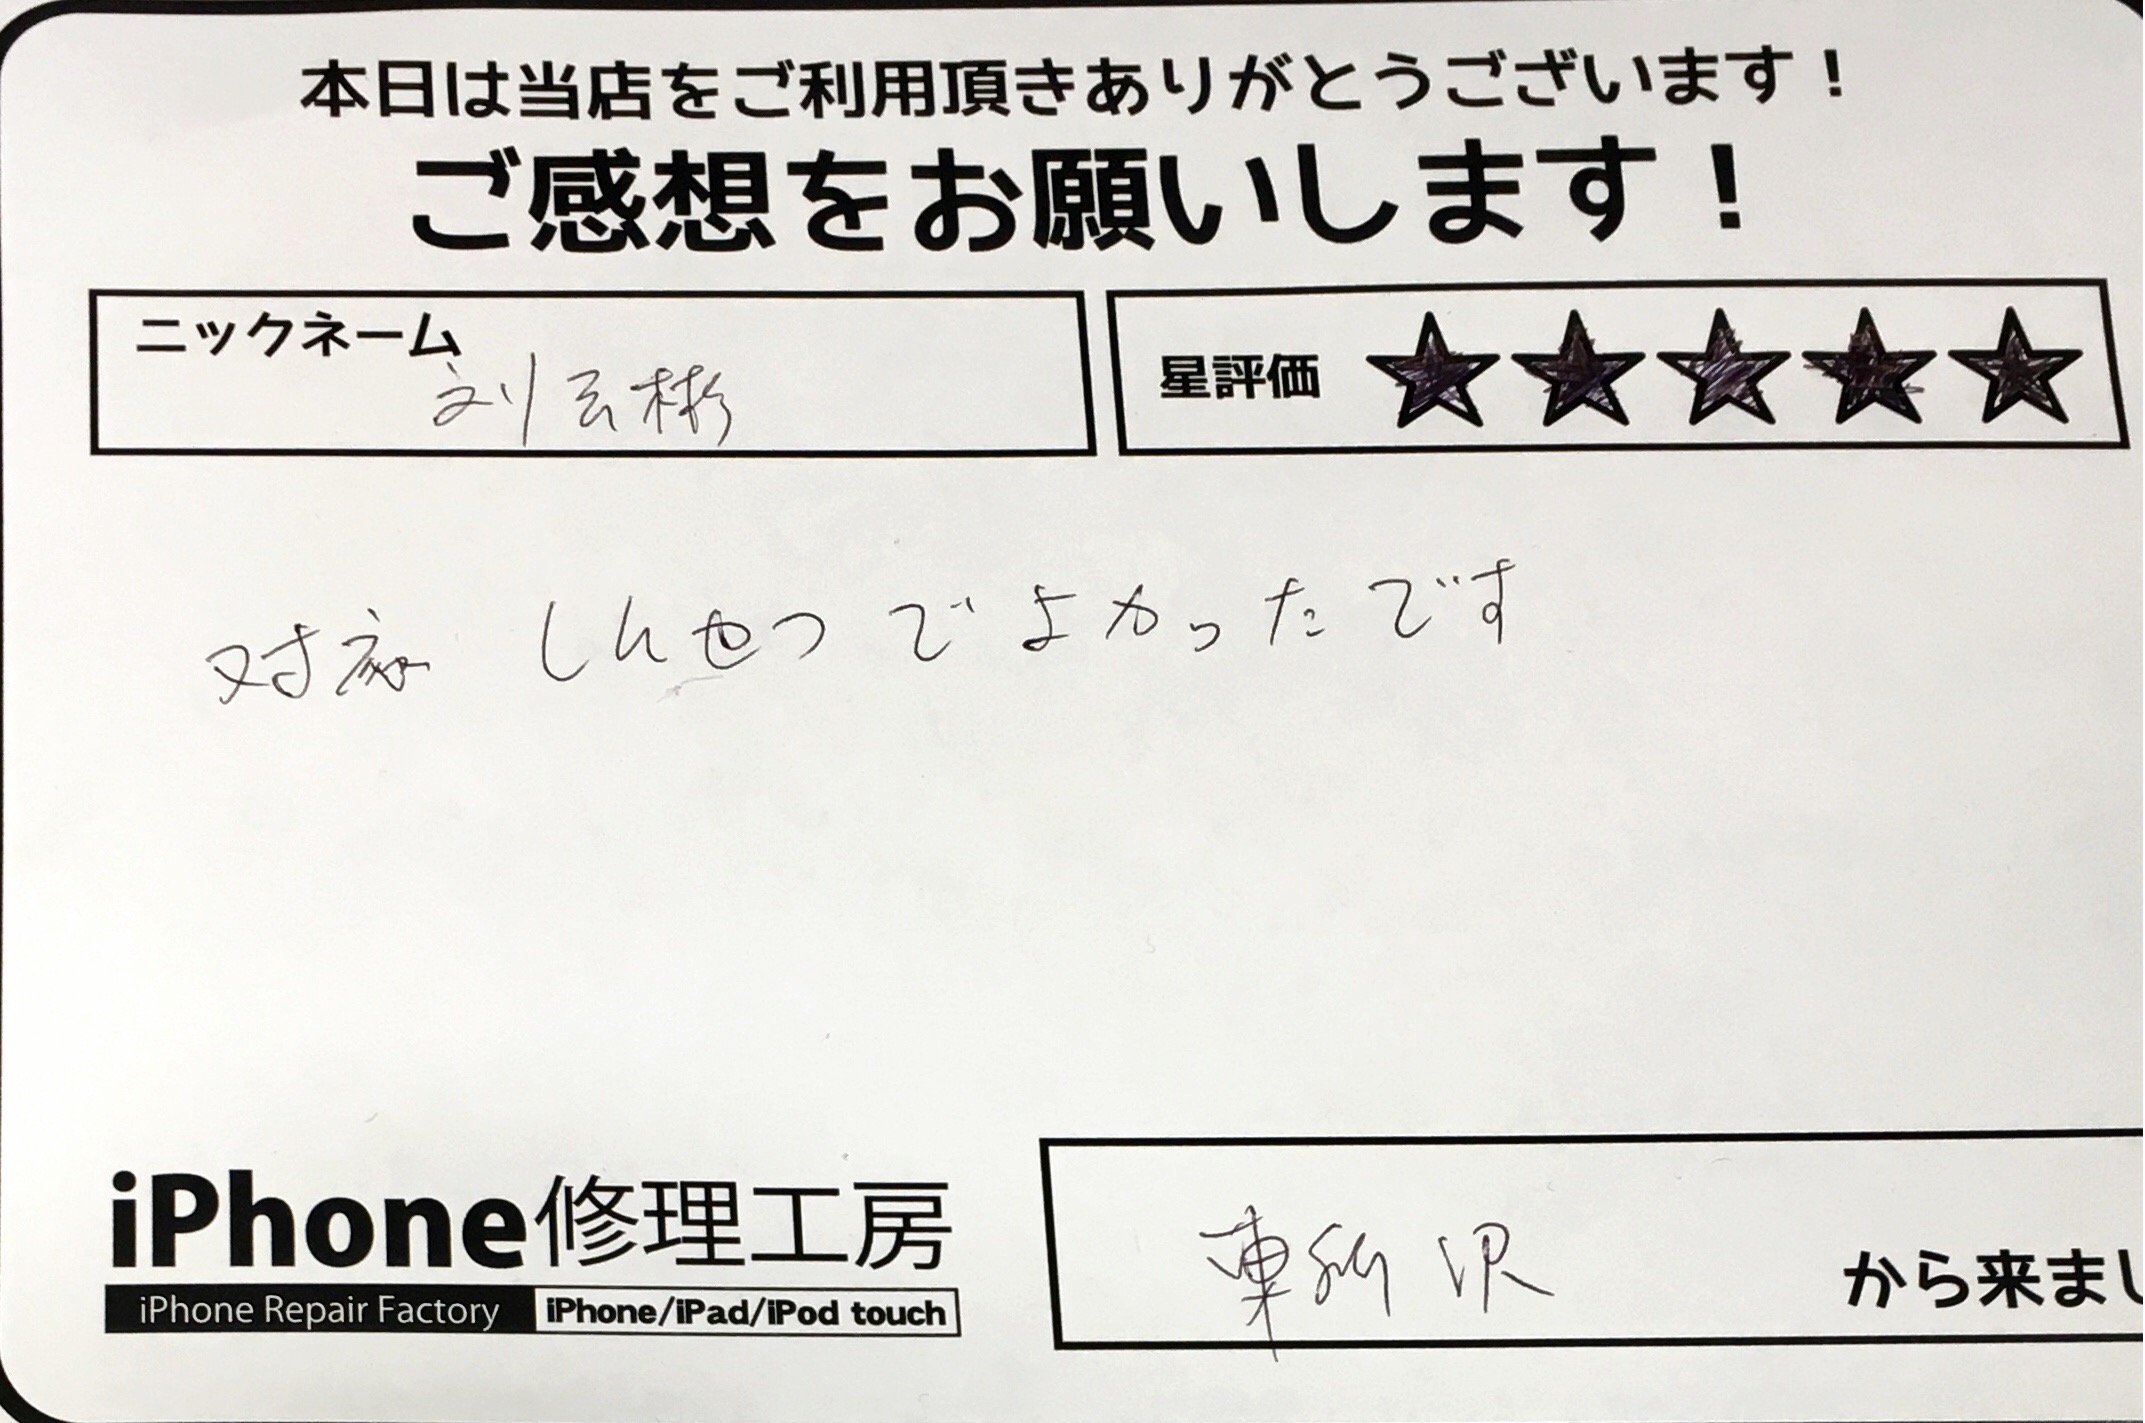 本日は当店をご利用頂きありがとうございます！
ご感想をお願いします！
ニックネーム
刘云彬
星評価 ★★★★★
対応 しんせつ でよかったです
iPhone修理工房
iPhone Repair Factory iPhone/iPad/iPod touch
東所沢 から来まし